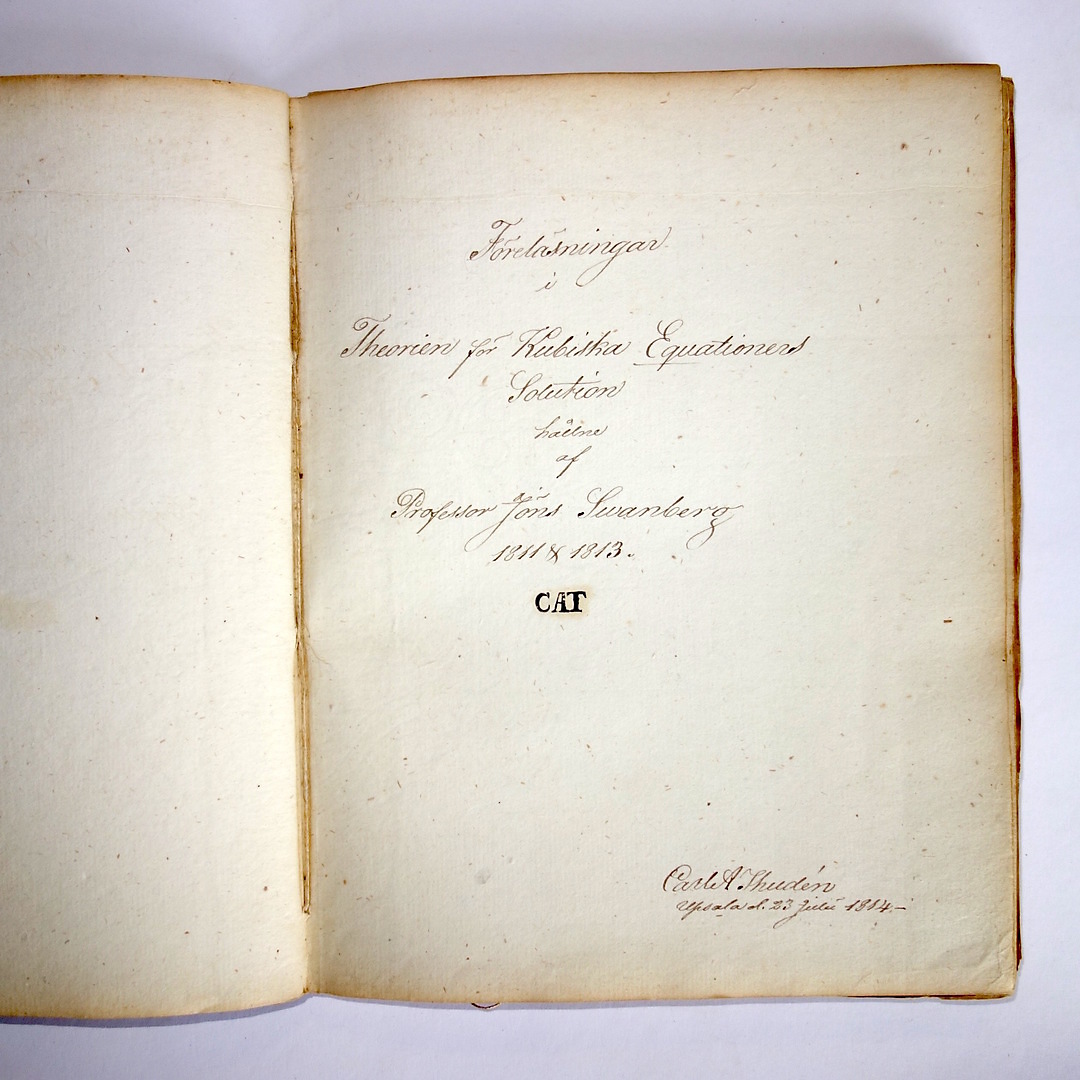 Föreläsningar
i
Theorien för Kubiska Equationers
Solution
hållne
af
Professor Jöns Swanberg
1811 & 1813.
CAT
Carl A Thudén
Upsala d. 23 Julii 1814.–